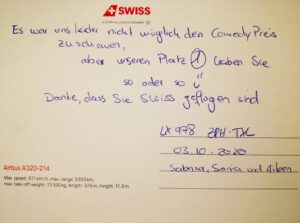 SWISS
A STAR ALLIANCE MEMBER
Es war uns leider nicht möglich den Comedy Preis
zu schauen,
aber unseren Platz 1 haben Sie
so oder so
Danke, dass Sie SWISS geflogen sind
LX 978 ZRH-TXL
03.10.2020
Sabrina, und
Airbus A320-214
Max. speed: 871 km/h, max. range:
max. take-off weight: length: 37.6m, height: 11.8m